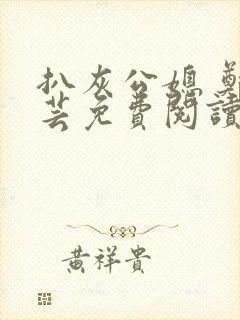 扒灰公媳 鄭
芸免費閱讀
黄祥貴